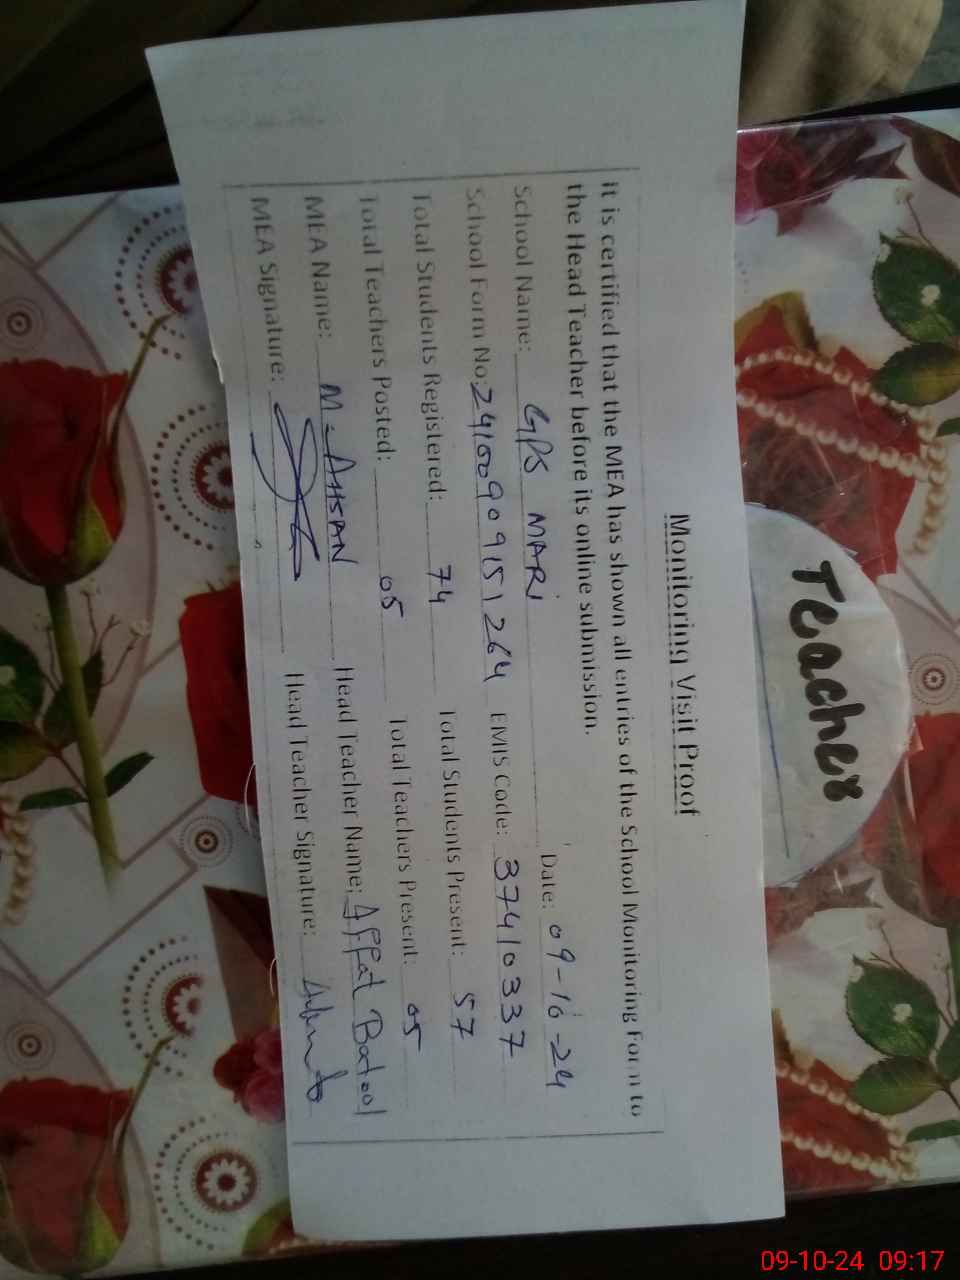 Teacher
Monitoring Visit Proof
It is certified that the MEA has shown all entries of the School Monitoring Form to
the Head Teacher before its online submission.
School Name: GPS MARI Date: 09-10-24
School Form No: 24100909151264 EMIS Code: 37410337
Total Students Registered: 74 Total Students Present: 57
Total Teachers Posted: 05 Total Teachers Present: 05
MEA Name: M. AHSAN Head Teacher Name: Affat Batool
MEA Signature: Head Teacher Signature:
09-10-24 09:17